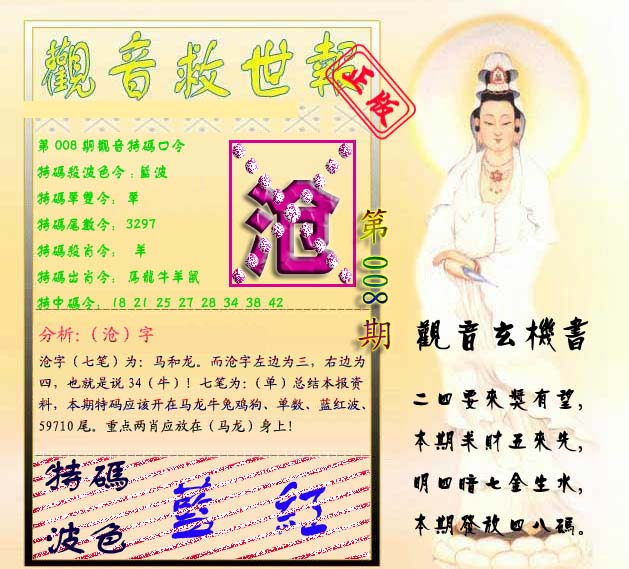 觀音救世報
正版
第008期觀音特碼口令
特碼殺波色令：藍波
特碼單雙令： 單
特碼尾數令： 3297
特碼殺肖令： 羊
特碼出肖令： 馬龍牛羊鼠
特中碼令： 18 21 25 27 28 34 38 42
沧
第008期
分析：（沧）字
沧字（七笔）为：马和龙。而沧字左边为三，右边为
四，也就是说 34（牛）！七笔为：（单）总结本报资
料，本期特码应该开在马龙牛兔鸡狗、单数、蓝红波、
59710 尾。重点两肖应放在（马龙）身上！
特碼
波色
藍 紅
觀音玄機書
二四要來獎有望，
本期羊財五來先，
明四暗七金生水，
本期發放四八碼。